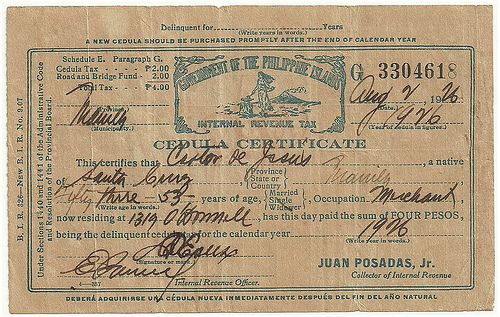 Delinquent for Years
(Write years in words.)
A NEW CEDULA SHOULD BE PURCHASED PROMPTLY AFTER THE END OF CALENDAR YEAR
B. I. R. 226—NEW B. I. R. No. 9.07
Under Sections 1440 and 1441 of the Administrative Code
and Resolution of the Provincial Board.
Schedule E. Paragraph G.
Cedula Tax - - - ₱2.00
Road and Bridge Fund - 2.00
Total Tax - - ₱4.00
Manila
(Province.)
(Municipality.)
GOVERNMENT OF THE PHILIPPINE ISLANDS
INTERNAL REVENUE TAX
G 3304618
Aug 2, 1926
(Date.)
1926
(Year of cedula in figures.)
CEDULA CERTIFICATE
This certifies that Castor de Jesus, a native
of Santa Cruz {Province State or Country} Manila
Fifty three 53 years of age, {Married Single Widower}, Occupation Merchant
(Write age in words.)
now residing at 1319 O'Donnell, has this day paid the sum of FOUR PESOS,
being the delinquent cedula tax for the calendar year 1926
(Write year in words.)
(Signature or mark.)
JUAN POSADAS, Jr.
Collector of Internal Revenue
Internal Revenue Officer.
357
DEBERÁ ADQUIRIRSE UNA CÉDULA NUEVA INMEDIATAMENTE DESPUÉS DEL FIN DEL AÑO NATURAL